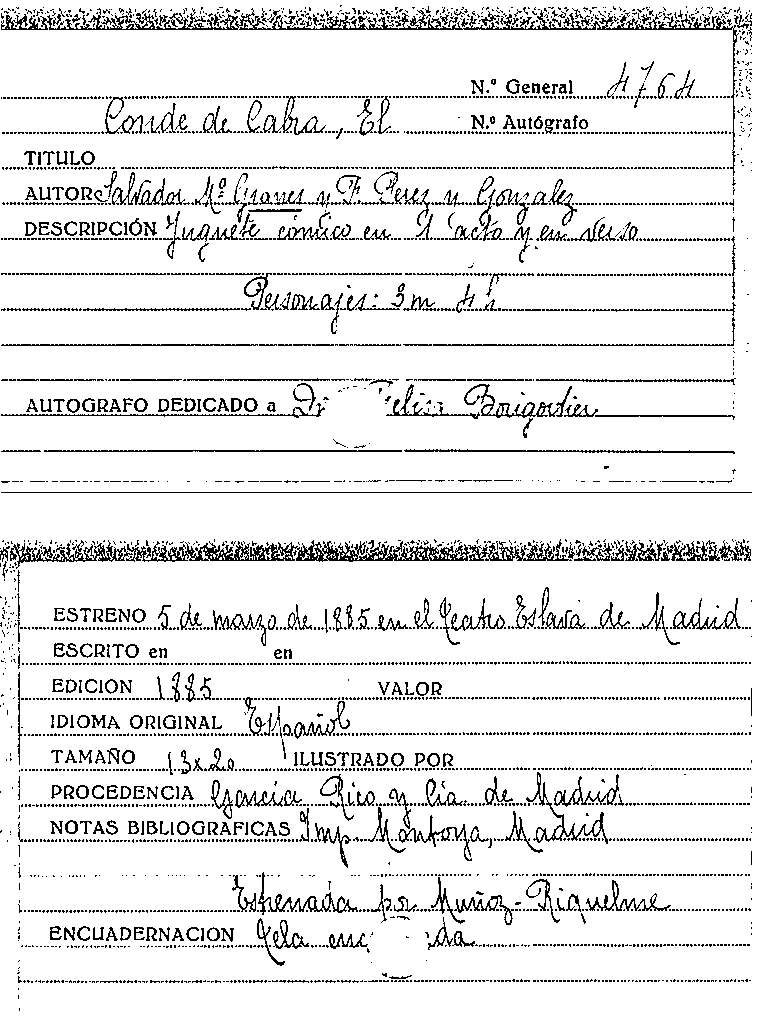 N.º General 4764
Conde de Cabra, El N.º Autógrafo
TITULO
AUTOR Salvador Mª Granes y F. Perez y Gonzalez
DESCRIPCIÓN Juguete cómico en 1 acto y en verso
Personajes: 3m 4h
AUTOGRAFO DEDICADO a
ESTRENO 5 de marzo de 1885 en el Teatro Eslava de Madrid
ESCRITO en en
EDICION 1885 VALOR
IDIOMA ORIGINAL Español
TAMAÑO 13x20 ILUSTRADO POR
PROCEDENCIA Garcia Rico y Cía. de Madrid
NOTAS BIBLIOGRAFICAS Imp. Montoya, Madrid
Estrenada por Muñoz-Riquelme
ENCUADERNACION Tela